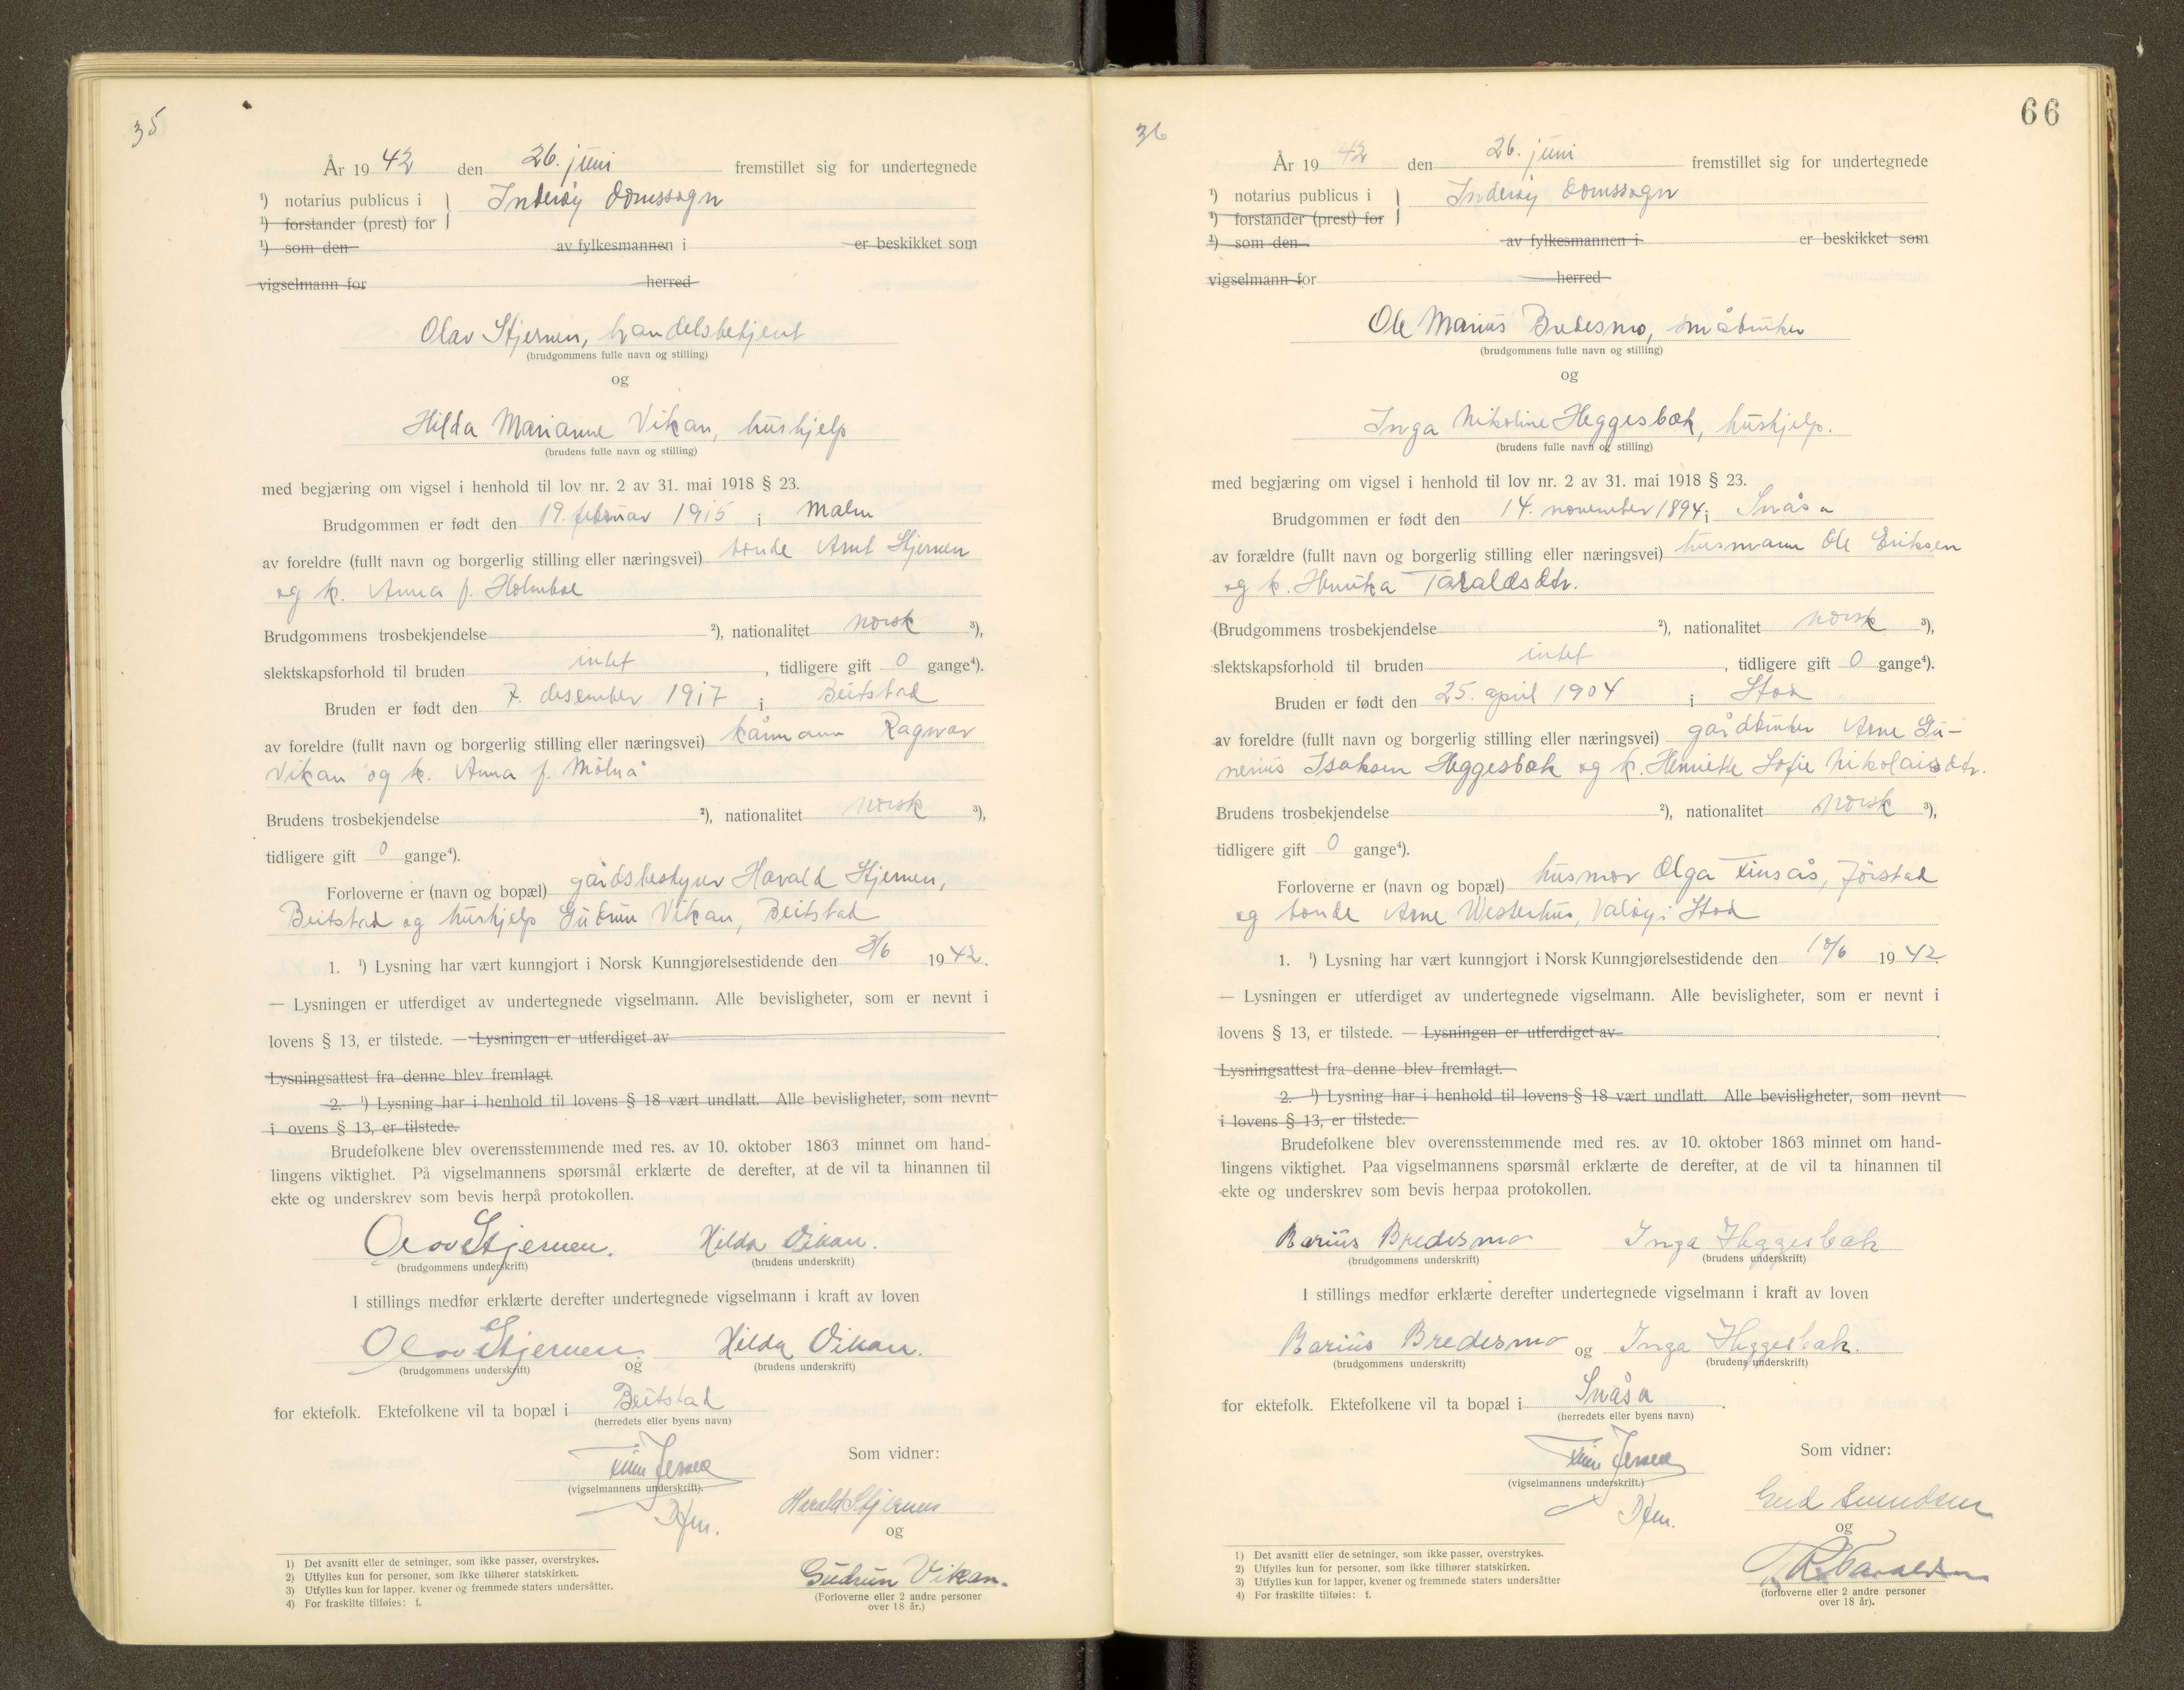 35
År 1942 den 26. juni fremstillet sig for undertegnede
¹) notarius publicus i } Inderøy domssogn
¹) forstander (prest) for
¹) som den av fylkesmannen i er beskikket som
vigselmann for herred
Olav Stjernen, handelsbetjent
(brudgommens fulle navn og stilling)
og
Hilda Marianne Vikan, hushjelp
(brudens fulle navn og stilling)
med begjæring om vigsel i henhold til lov nr. 2 av 31. mai 1918 § 23.
Brudgommen er født den 19. februar 1915 i Malm
av foreldre (fullt navn og borgerlig stilling eller næringsvei) bonde Arnt Stjernen
og k. Anna f. Holmboe
Brudgommens trosbekjendelse ²), nationalitet norsk ³),
slektskapsforhold til bruden intet, tidligere gift 0 gange⁴).
Bruden er født den 7. desember 1917 i Beitstad
av foreldre (fullt navn og borgerlig stilling eller næringsvei) kårmann Ragnvar
Vikan og k. Anna f. Mølnå
Brudens trosbekjendelse ²), nationalitet norsk ³),
tidligere gift 0 gange⁴).
Forloverne er (navn og bopæl) gårdsbestyrer Harald Stjernen,
Beitstad og hushjelp Gudrun Vikan, Beitstad
1. ¹) Lysning har vært kunngjort i Norsk Kunngjørelsestidende den 3/6 1942.
— Lysningen er utferdiget av undertegnede vigselmann. Alle bevisligheter, som er nevnt i
lovens § 13, er tilstede. — Lysningen er utferdiget av
Lysningsattest fra denne blev fremlagt.
2. ¹) Lysning har i henhold til lovens § 18 vært undlatt. Alle bevisligheter, som nevnt
i ovens § 13, er tilstede.
Brudefolkene blev overensstemmende med res. av 10. oktober 1863 minnet om hand-
lingens viktighet. På vigselmannens spørsmål erklærte de derefter, at de vil ta hinannen til
ekte og underskrev som bevis herpå protokollen.
Olav Stjernen. Hilda Vikan.
(brudgommens underskrift) (brudens underskrift)
I stillings medfør erklærte derefter undertegnede vigselmann i kraft av loven
Olav Stjernen og Hilda Vikan.
(brudgommens underskrift) (brudens underskrift)
for ektefolk. Ektefolkene vil ta bopæl i Beitstad
(herredets eller byens navn)
Som vidner:
(vigselmannens underskrift).
Harald Stjernen
og
Gudrun Vikan.
(Forloverne eller 2 andre personer
over 18 år.)
1) Det avsnitt eller de setninger, som ikke passer, overstrykes.
2) Utfylles kun for personer, som ikke tilhører statskirken.
3) Utfylles kun for lapper, kvener og fremmede staters undersåtter.
4) For fraskilte tilføies: f.
66
36
År 1942 den 26. juni fremstillet sig for undertegnede
¹) notarius publicus i } Inderøy domssogn
¹) forstander (prest) for
¹) som den av fylkesmannen i er beskikket som
vigselmann for herred
Ole Marius Bredesmo, småbruker
(brudgommens fulle navn og stilling)
og
Inga Nikoline Heggesbæk, hushjelp.
(brudens fulle navn og stilling)
med begjæring om vigsel i henhold til lov nr. 2 av 31. mai 1918 § 23.
Brudgommen er født den 14. november 1894 i Snåsa
av forældre (fullt navn og borgerlig stilling eller næringsvei) husmann Ole Eriksen
og k. Henrika Taraldsdtr.
(Brudgommens trosbekjendelse ²), nationalitet norsk ³),
slektskapsforhold til bruden intet, tidligere gift 0 gange⁴).
Bruden er født den 25. april 1904 i Stod
av foreldre (fullt navn og borgerlig stilling eller næringsvei) gårdbruker Arne Gu-
nerius Isaksen Heggesbæk og k. Henriette Sofie Nikolaisdtr.
Brudens trosbekjendelse ²), nationalitet norsk ³),
tidligere gift 0 gange⁴).
Forloverne er (navn og bopæl) husmor Olga Finsås, Jørstad
og bonde Arne Westerhus, Valøy i Stod
1. ¹) Lysning har vært kunngjort i Norsk Kunngjørelsestidende den 10/6 1942.
— Lysningen er utferdiget av undertegnede vigselmann. Alle bevisligheter, som er nevnt i
lovens § 13, er tilstede. — Lysningen er utferdiget av .
Lysningsattest fra denne blev fremlagt.
2. ¹) Lysning har i henhold til lovens § 18 vært undlatt. Alle bevisligheter, som nevnt
i lovens § 13, er tilstede.
Brudefolkene blev overensstemmende med res. av 10. oktober 1863 minnet om hand-
lingens viktighet. Paa vigselmannens spørsmål erklærte de derefter, at de vil ta hinannen til
ekte og underskrev som bevis herpaa protokollen.
Marius Bredesmo Inga Heggesbæk
(brudgommens underskrift) (brudens underskrift)
I stillings medfør erklærte derefter undertegnede vigselmann i kraft av loven
Marius Bredesmo og Inga Heggesbæk.
(brudgommens underskrift) (brudens underskrift)
for ektefolk. Ektefolkene vil ta bopæl i Snåsa.
(herredets eller byens navn)
Som vidner:
(vigselmannens underskrift.)
og
(forloverne eller 2 andre personer
over 18 år).
1) Det avsnitt eller de setninger, som ikke passer, overstrykes.
2) Utfylles kun for personer, som ikke tilhører statskirken.
3) Utfylles kun for lapper, kvener og fremmede staters undersåtter
4) For fraskilte tilføies: f.